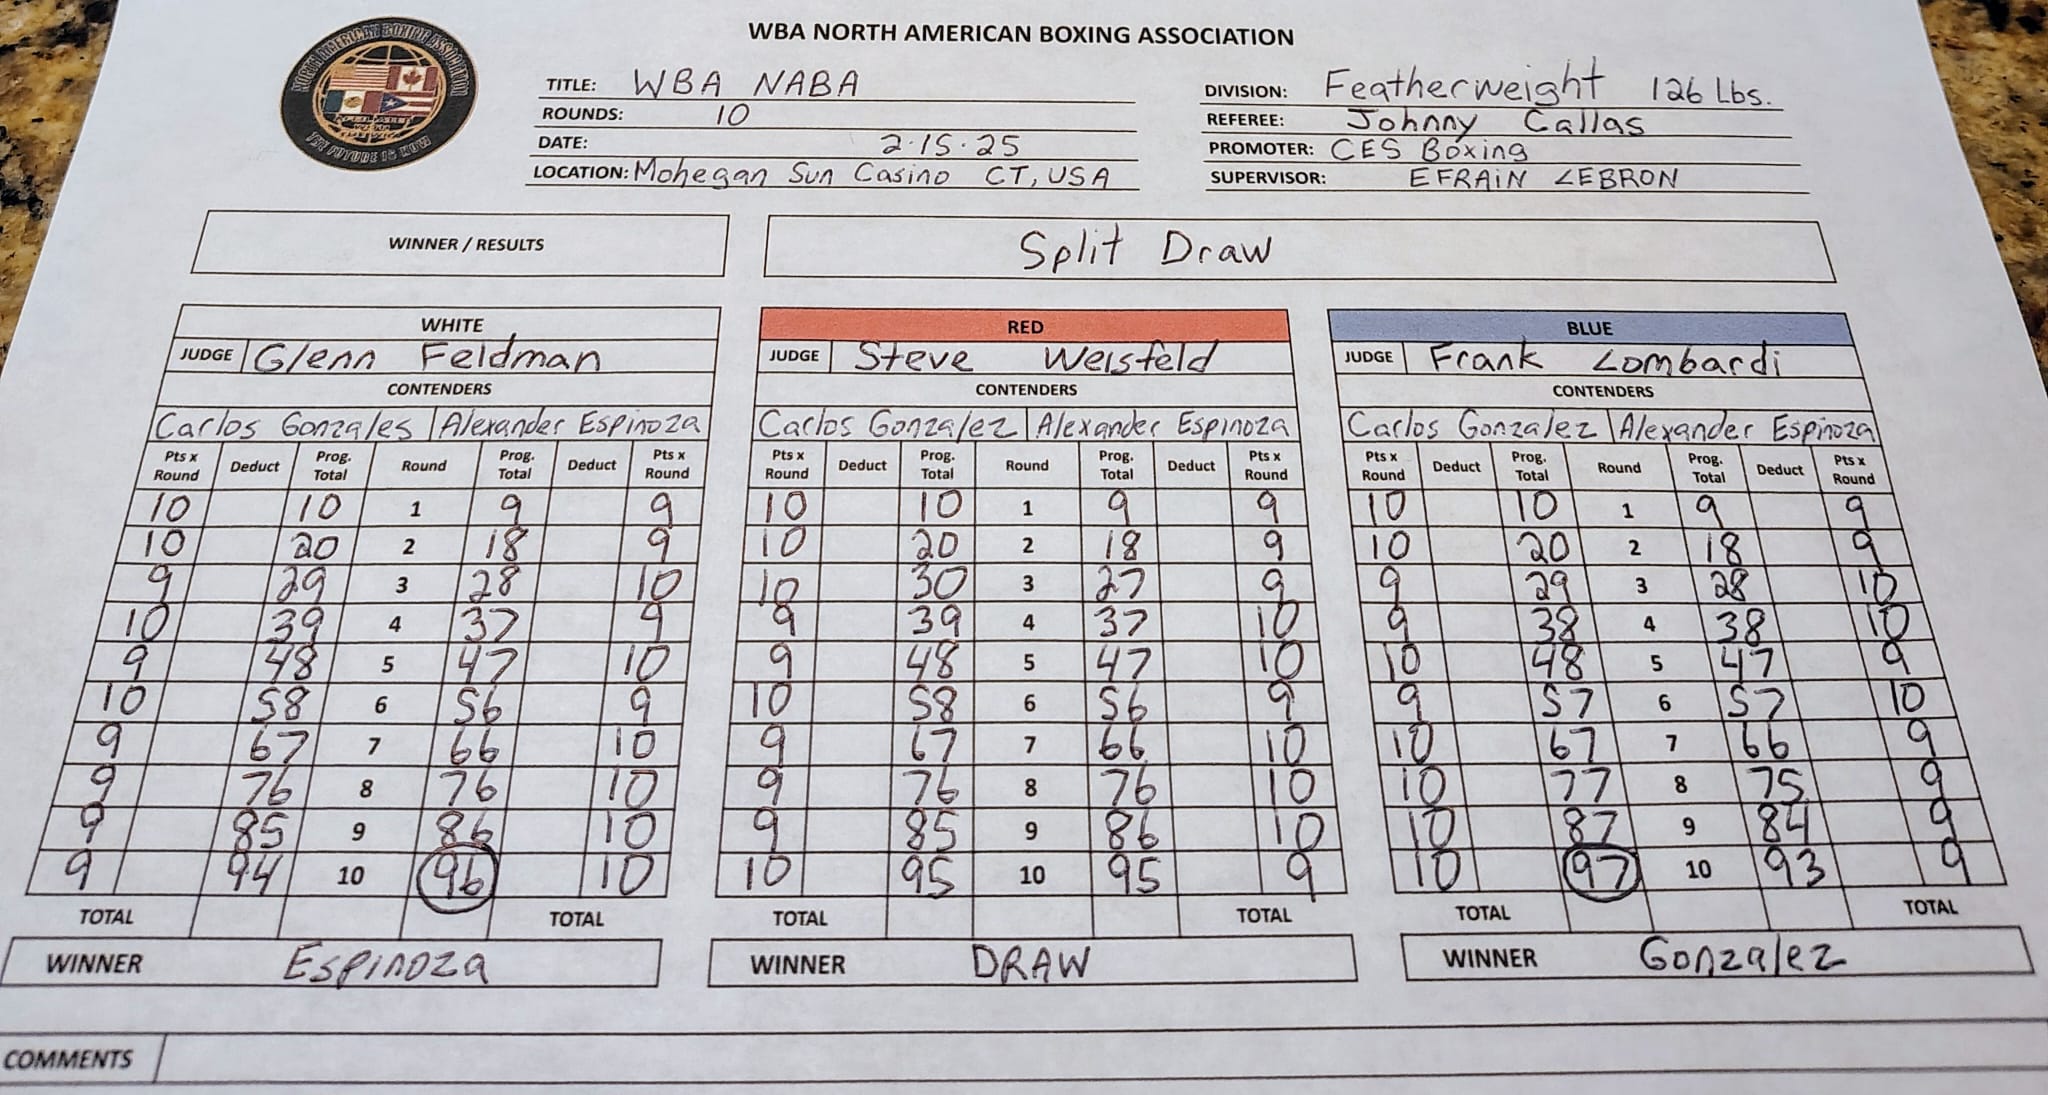 NORTH AMERICAN BOXING ASSOCIATION
THE FUTURE IS NOW
WBA NORTH AMERICAN BOXING ASSOCIATION
TITLE: WBA NABA
ROUNDS: 10
DATE: 2.15.25
LOCATION: Mohegan Sun Casino CT, USA
DIVISION: Featherweight 126 Lbs.
REFEREE: Johnny Callas
PROMOTER: CES Boxing
SUPERVISOR: EFRAIN LEBRON
WINNER / RESULTS Split Draw
WHITE
JUDGE Glenn Feldman
CONTENDERS
Carlos Gonzales Alexander Espinoza
Pts x Round Deduct Prog. Total Round Prog. Total Deduct Pts x Round
10 10 1 9 9
10 20 2 18 9
9 29 3 28 10
10 39 4 37 9
9 48 5 47 10
10 58 6 56 9
9 67 7 66 10
9 76 8 76 10
9 85 9 86 10
9 94 10 96 10
TOTAL TOTAL
WINNER Espinoza
RED
JUDGE Steve Weisfeld
CONTENDERS
Carlos Gonzalez Alexander Espinoza
Pts x Round Deduct Prog. Total Round Prog. Total Deduct Pts x Round
10 10 1 9 9
10 20 2 18 9
10 30 3 27 9
9 39 4 37 10
9 48 5 47 10
10 58 6 56 9
9 67 7 66 10
9 76 8 76 10
9 85 9 86 10
10 95 10 95 9
TOTAL TOTAL
WINNER DRAW
BLUE
JUDGE Frank Lombardi
CONTENDERS
Carlos Gonzalez Alexander Espinoza
Pts x Round Deduct Prog. Total Round Prog. Total Deduct Pts x Round
10 10 1 9 9
10 20 2 18 9
9 29 3 28 10
9 38 4 38 10
10 48 5 47 9
9 57 6 57 10
10 67 7 66 9
10 77 8 75 9
10 87 9 84 9
10 97 10 93 9
TOTAL TOTAL
WINNER Gonzalez
COMMENTS